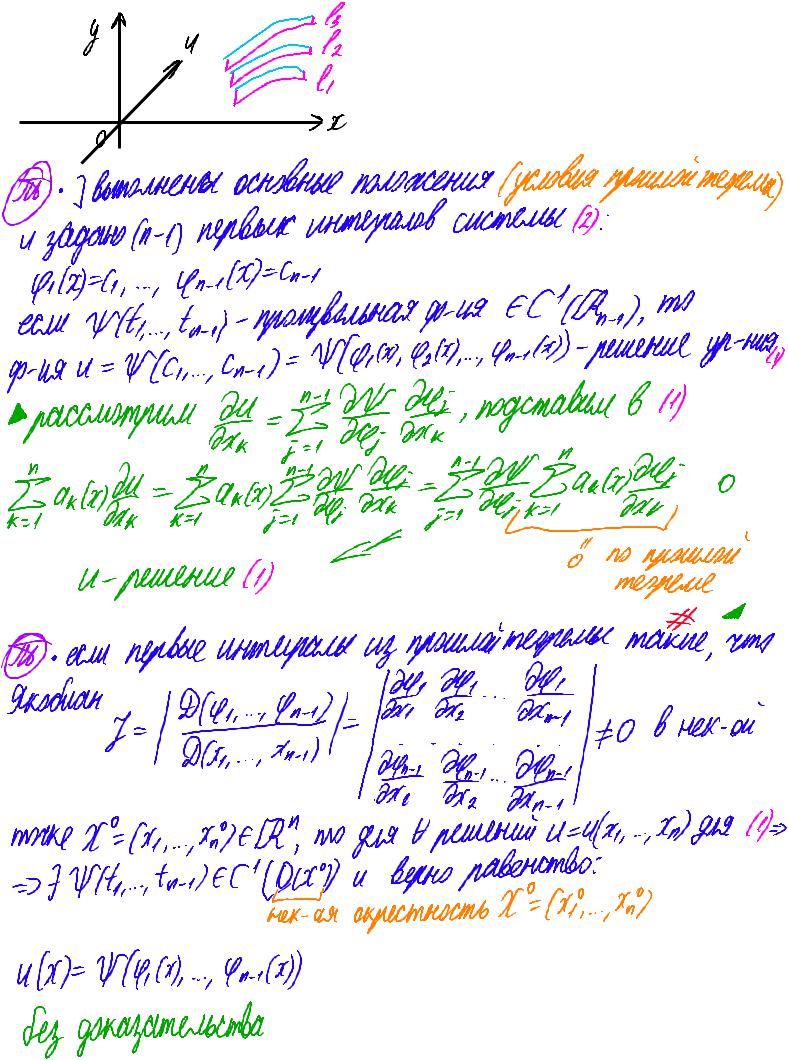 y
u
l₃
l₂
l₁
0
x
Th • ] выполнены основные положения (условия прошлой теоремы)
и задано (n-1) первых интегралов системы (2):
φ₁(x)=c₁, ..., φₙ₋₁(x)=cₙ₋₁
если Ψ(t₁,...,tₙ₋₁) - произвольная ф-ия ∈ C¹(ℝₙ₋₁), то
ф-ия u = Ψ(c₁,..., cₙ₋₁) = Ψ(φ₁(x), φ₂(x),..., φₙ₋₁(x)) - решение ур-ния (1)
▶ рассмотрим ∂u/∂xₖ = ∑_{j=1}^{n-1} ∂Ψ/∂φⱼ ∂φⱼ/∂xₖ, подставим в (1)
∑_{k=1}^{n} aₖ(x) ∂u/∂xₖ = ∑_{k=1}^{n} aₖ(x) ∑_{j=1}^{n-1} ∂Ψ/∂φⱼ ∂φⱼ/∂xₖ = ∑_{j=1}^{n-1} ∂Ψ/∂φⱼ ∑_{k=1}^{n} aₖ(x) ∂φⱼ/∂xₖ 0
0 по прошлой
теореме
u - решение (1)
#
Th • если первые интегралы из прошлой теоремы такие, что
Якобиан J = |D(φ₁,..., φₙ₋₁)/D(x₁,..., xₙ₋₁)| = |∂φ₁/∂x₁ ∂φ₁/∂x₂ ... ∂φ₁/∂xₙ₋₁ ... ∂φₙ₋₁/∂x₁ ∂φₙ₋₁/∂x₂ ... ∂φₙ₋₁/∂xₙ₋₁| ≠ 0 в нек-ой
тчке X⁰=(x₁,...,xₙ⁰) ∈ ℝⁿ, то для ∀ решений u=u(x₁,..,xₙ) для (1) ⇒
⇒ ∃ Ψ(t₁,..., tₙ₋₁) ∈ C¹(O(X⁰)) и верно равенство:
нек-ая окрестность X⁰=(x₁⁰,...,xₙ⁰)
u(x) = Ψ(φ₁(x),..., φₙ₋₁(x))
без доказательства